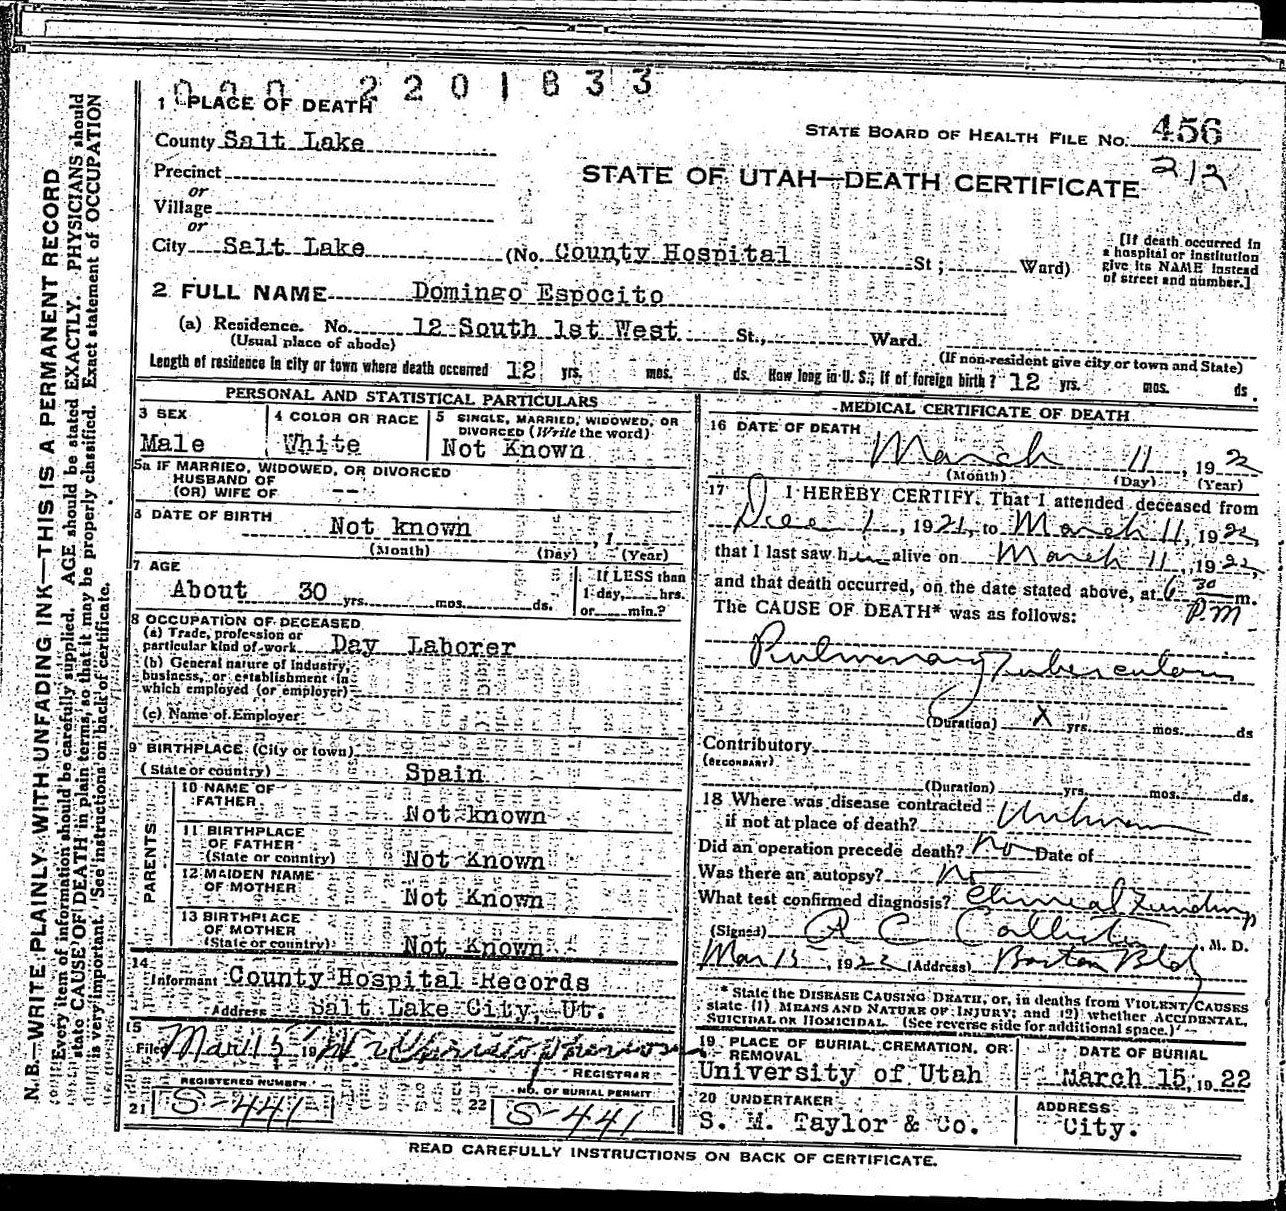 000 2201833
1 PLACE OF DEATH
STATE BOARD OF HEALTH FILE NO. 456
212
County Salt Lake
STATE OF UTAH—DEATH CERTIFICATE
Precinct
or
Village
or
City Salt Lake (No. County Hospital St; Ward)
[If death occurred in
a hospital or institution
give its NAME instead
of street and number.]
2 FULL NAME Domingo Espocito
(a) Residence. No. 12 South 1st West St., Ward.
(Usual place of abode) (If non-resident give city or town and State)
Length of residence in city or town where death occurred 12 yrs. mos. ds. How long in U. S., if of foreign birth? 12 yrs. mos. ds.
PERSONAL AND STATISTICAL PARTICULARS
3 SEX
Male
4 COLOR OR RACE
White
5 SINGLE, MARRIED, WIDOWED, OR
DIVORCED (Write the word)
Not Known
5a IF MARRIED, WIDOWED, OR DIVORCED
HUSBAND OF
(OR) WIFE OF --
6 DATE OF BIRTH
Not known , 1
(Month) (Day) (Year)
7 AGE
About 30 yrs. mos. ds.
If LESS than
1 day, hrs.
or min.?
8 OCCUPATION OF DECEASED
(a) Trade, profession or
particular kind of work Day Laborer
(b) General nature of Industry,
business, or establishment in
which employed (or employer)
(c) Name of Employer
9 BIRTHPLACE (City or town)
(State or country) Spain
PARENTS
10 NAME OF
FATHER Not known
11 BIRTHPLACE
OF FATHER
(State or country) Not Known
12 MAIDEN NAME
OF MOTHER Not Known
13 BIRTHPLACE
OF MOTHER
(State or country) Not Known
14
Informant County Hospital Records
Address Salt Lake City, Ut.
15
Filed Mar 15 19
REGISTRAR
REGISTERED NUMBER
21 S-441
NO. OF BURIAL PERMIT
22 S-441
MEDICAL CERTIFICATE OF DEATH
16 DATE OF DEATH
March 11, 1922
(Month) (Day) (Year)
17 I HEREBY CERTIFY. That I attended deceased from
Dec 1, 1921, to March 11, 1922,
that I last saw him alive on March 11, 1922,
and that death occurred, on the date stated above, at 6 30 m.
The CAUSE OF DEATH* was as follows: P.M
Pulmonary Tuberculosis
(Duration) X yrs. mos. ds
Contributory
(SECONDARY)
(Duration) yrs. mos. ds.
18 Where was disease contracted
if not at place of death? Unknown
Did an operation precede death? No Date of
Was there an autopsy? No
What test confirmed diagnosis? Clinical Findings
(Signed) A C Callister M. D.
Mar 15, 1922 (Address) Boston Bldg
* State the DISEASE CAUSING DEATH, or, in deaths from VIOLENT CAUSES
state (1) MEANS AND NATURE OF INJURY; and (2) whether ACCIDENTAL,
SUICIDAL OR HOMICIDAL. (See reverse side for additional space.)
19 PLACE OF BURIAL, CREMATION, OR
REMOVAL
University of Utah
DATE OF BURIAL
March 15, 1922
20 UNDERTAKER
S. M. Taylor & Co.
ADDRESS
City.
READ CAREFULLY INSTRUCTIONS ON BACK OF CERTIFICATE.
N. B.—WRITE PLAINLY WITH UNFADING INK—THIS IS A PERMANENT RECORD
Every item of information should be carefully supplied. AGE should be stated EXACTLY. PHYSICIANS should
state CAUSE OF DEATH in plain terms, so that it may be properly classified. Exact statement of OCCUPATION
is very important. See instructions on back of certificate.